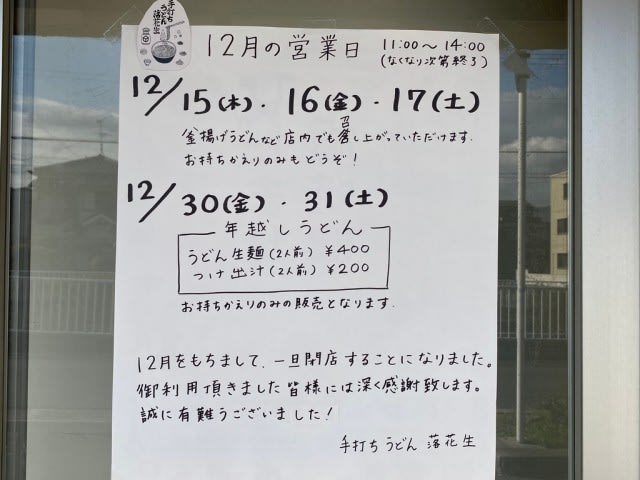 手打ち
うどん
落花生
12月の営業日 11:00～14:00
(なくなり次第終了)
12/15(木)・16(金)・17(土)
釜揚げうどんなど店内でも召し上がっていただけます.
お持ちかえりのみもどうぞ!
12/30(金)・31(土)
年越しうどん
うどん生麺(2人前) ¥400
つけ出汁(2人前) ¥200
お持ちかえりのみの販売となります.
12月をもちまして、一旦閉店することになりました。
御利用頂きました皆様には深く感謝致します。
誠に有難うございました!
手打ちうどん 落花生